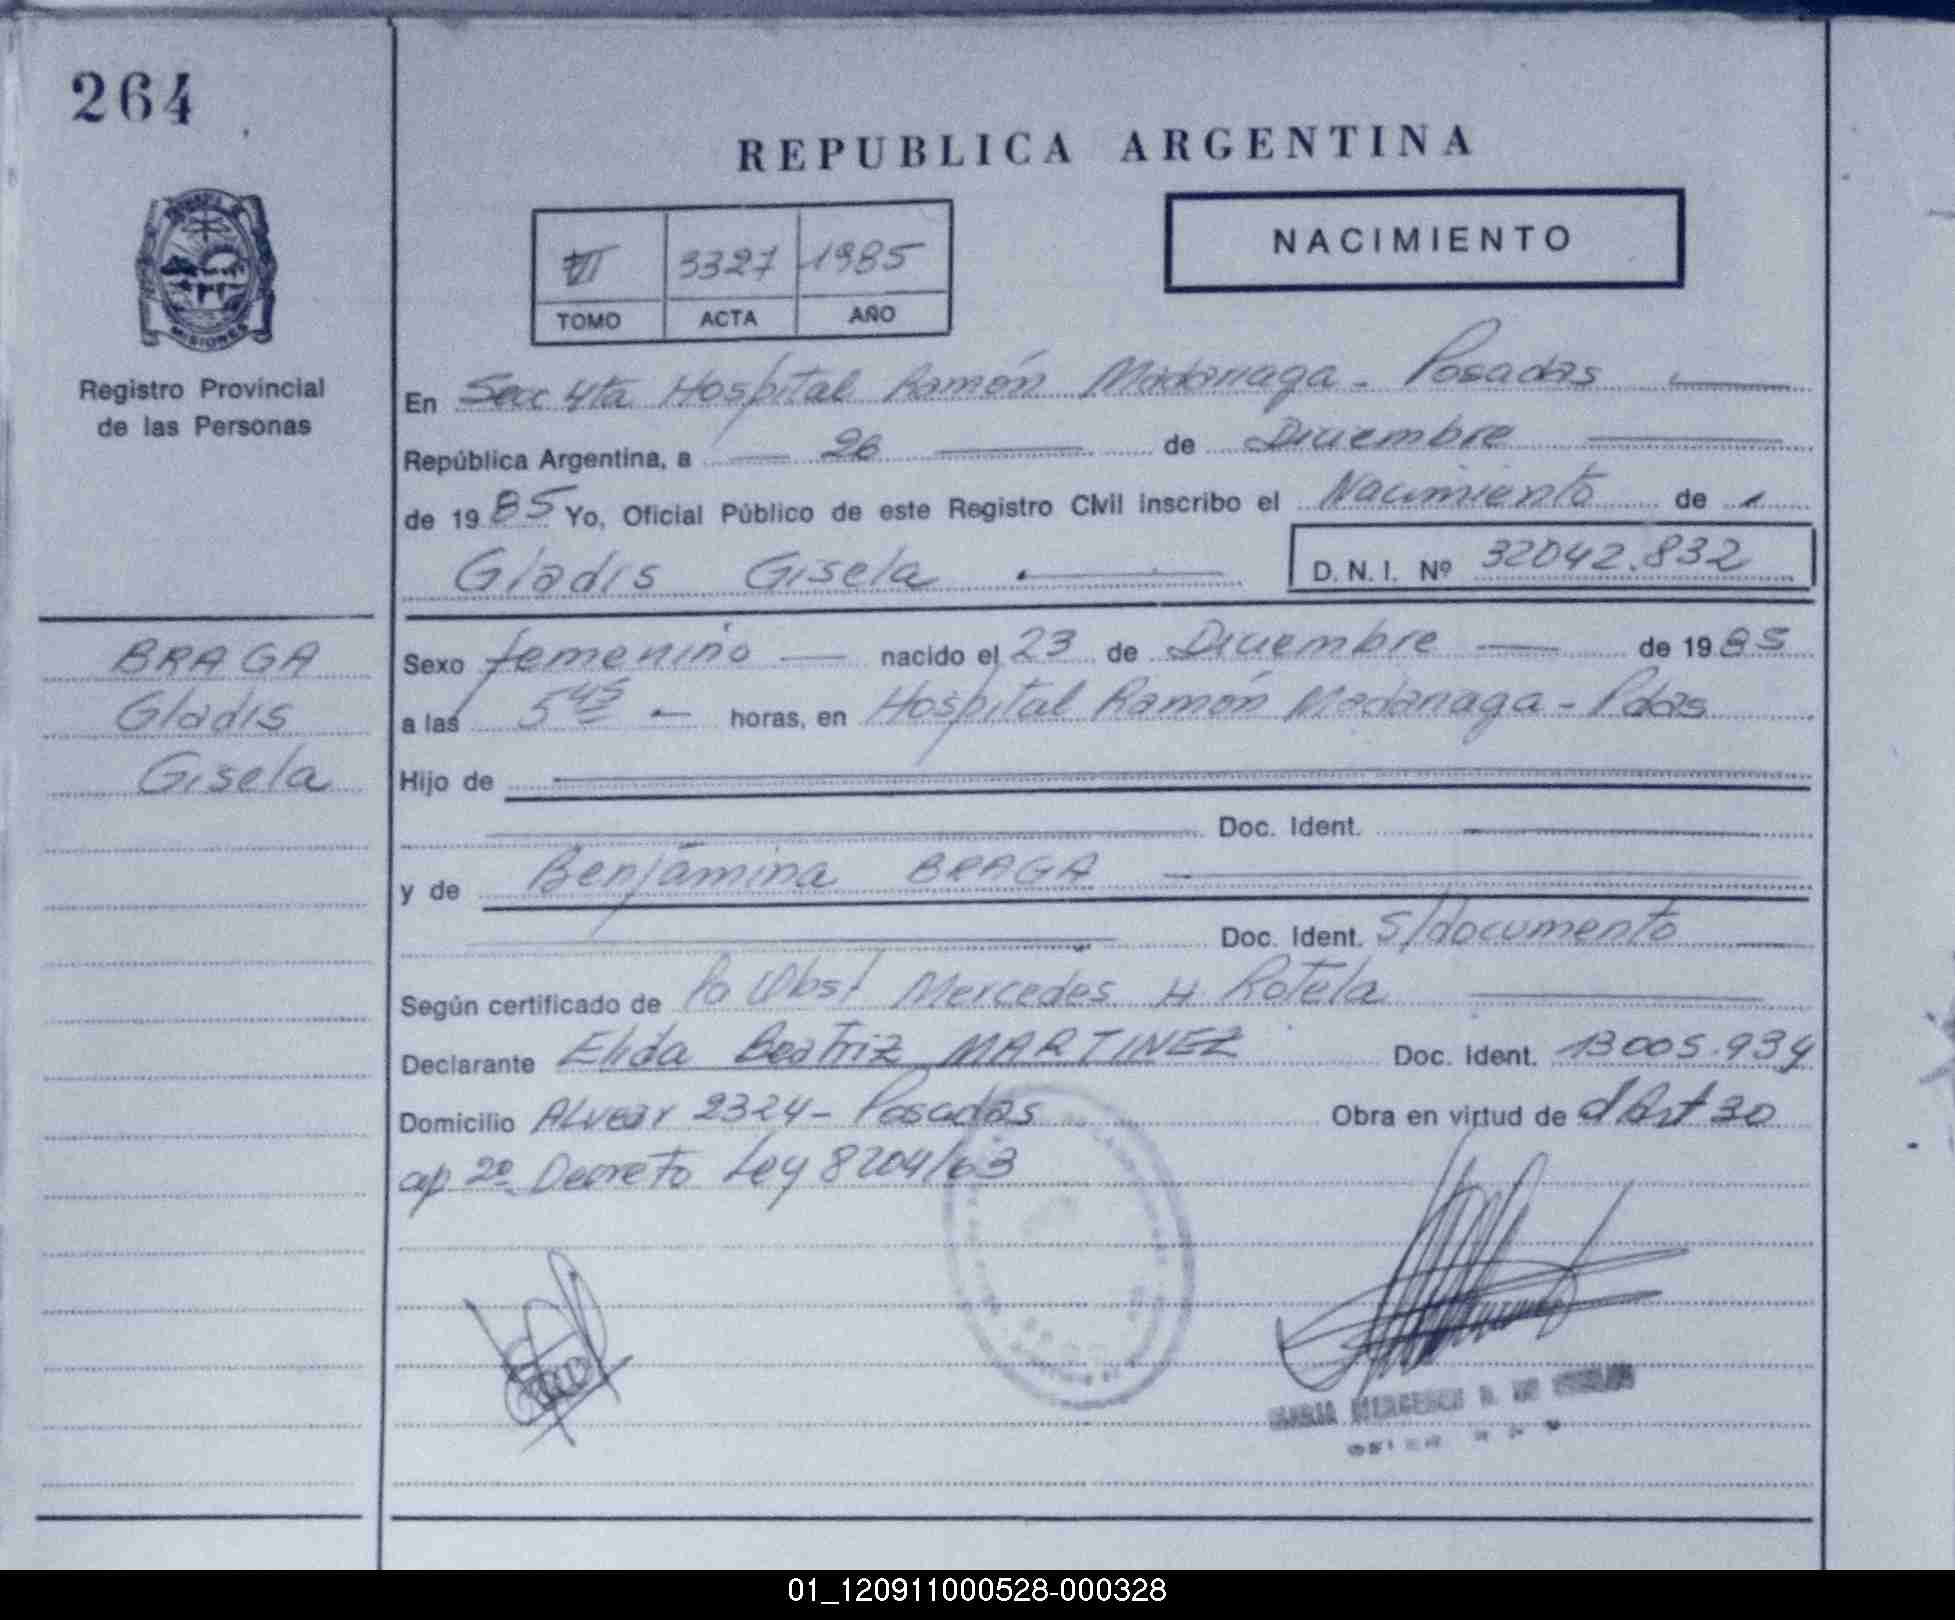 264
REPUBLICA ARGENTINA
NACIMIENTO
VI 3327 1985
TOMO ACTA AÑO
MISIONES
Registro Provincial
de las Personas
En Secc 4ta Hospital Ramón Madariaga - Posadas
República Argentina, a 26 de Diciembre
de 1985 Yo, Oficial Público de este Registro Civil inscribo el Nacimiento de
Gladis Gisela D.N.I. Nº 32042.832
BRAGA
Gladis
Gisela
Sexo femenino nacido el 23 de Diciembre de 1985
a las 5 45 horas, en Hospital Ramón Madariaga - Pdas
Hijo de
Doc. Ident.
y de Benjamina BRAGA
Doc. Ident. S/documento
Según certificado de Pa Obst Mercedes H Rotela
Declarante Elida Beatriz MARTINEZ Doc. Ident. 13005.934
Domicilio Alvear 2324 - Posadas Obra en virtud de d Art 30
ap 2º Decreto Ley 8204/63
MARIA MERCEDES
01_120911000528-000328